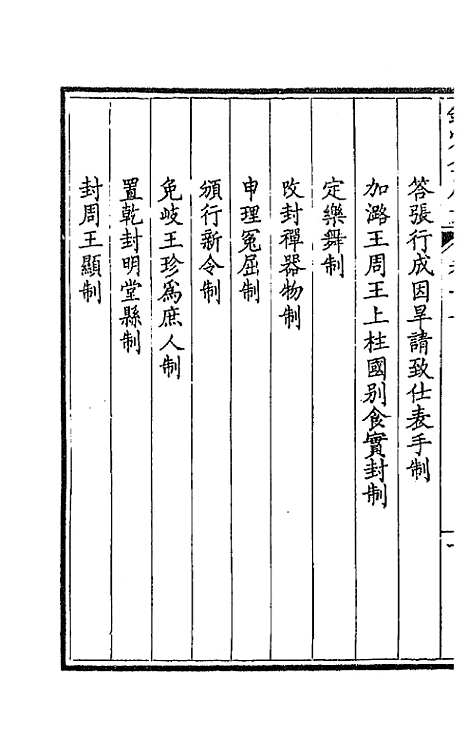 答張行成因旱請致仕表手制
加潞王周王上柱國别食實封制
定樂舞制
改封禪器物制
申理冤屈制
頒行新令制
免岐王珍爲庶人制
置乾封明堂縣制
封周王顯制